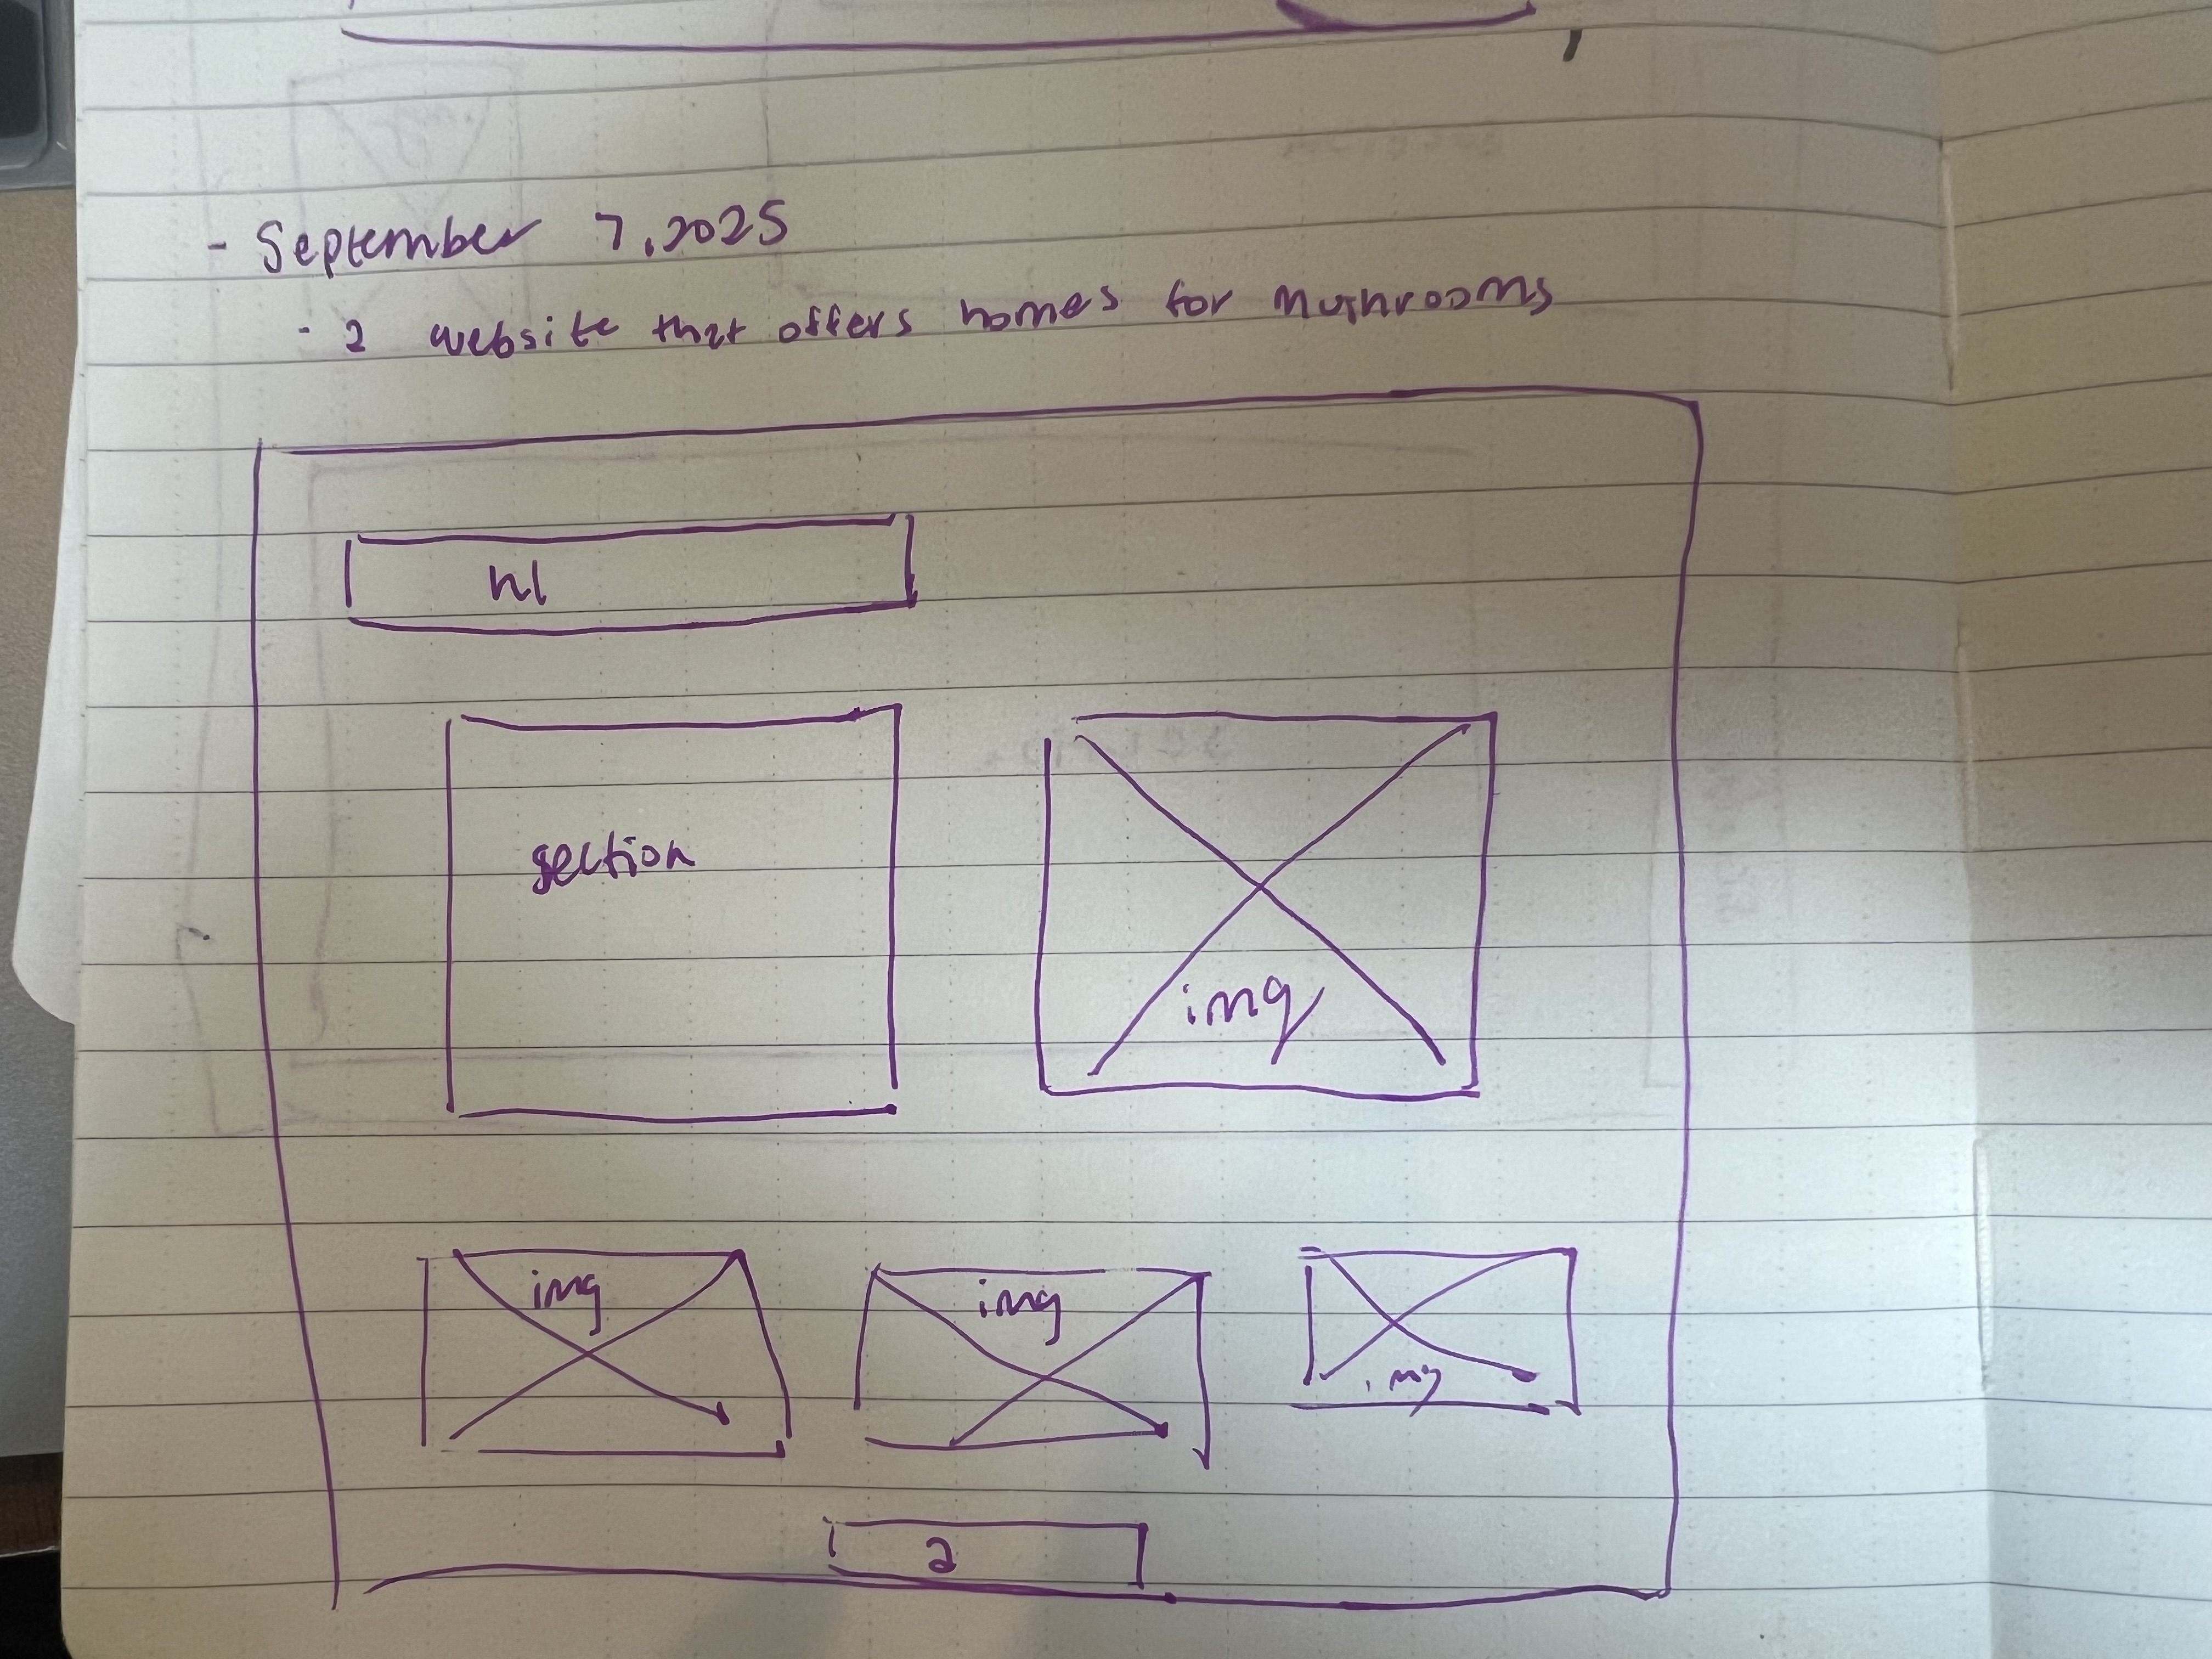 - September 7, 2025
- a website that offers homes for Mushrooms
h1
section
img
img
img
img
a